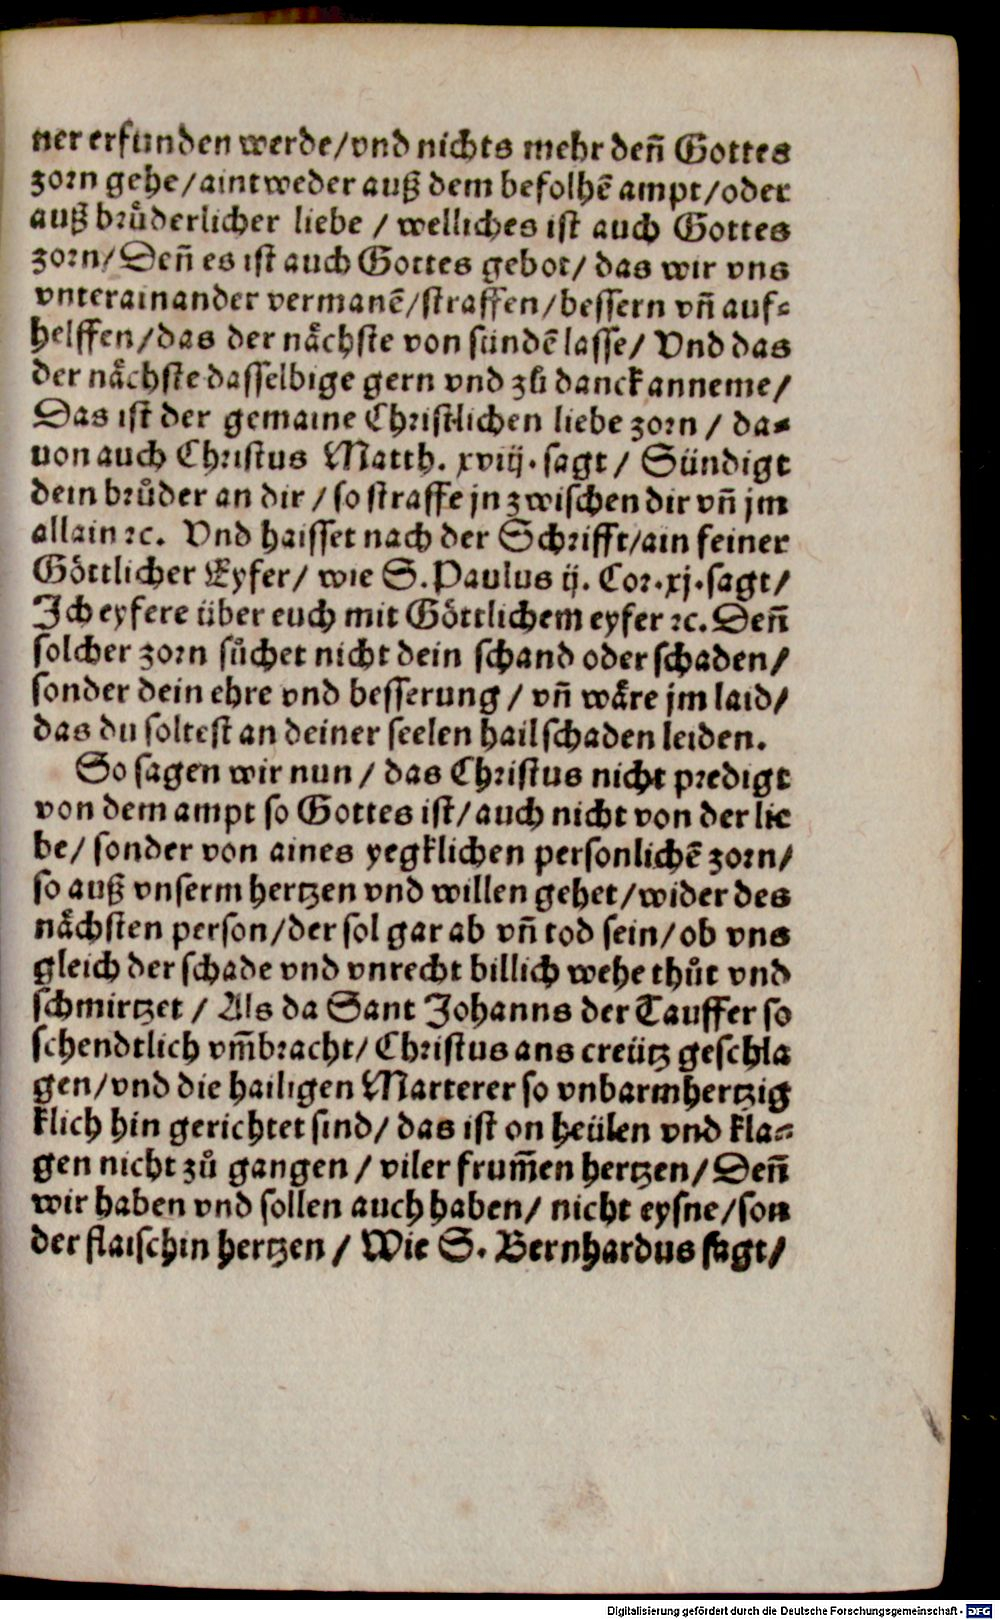 ner erfunden werde/vnd nichts mehr deñ Gottes
zorn gehe/aintweder auß dem befolhẽ ampt/oder
auß brůderlicher liebe / welliches ist auch Gottes
zorn/ Deñ es ist auch Gottes gebot/ das wir vns
vnterainander vermanẽ/straffen/bessern vñ auf-
helffen/das der nächste von sündẽ lasse/ Vnd das
der nächste dasselbige gern vnd zů danck anneme/
Das ist der gemaine Christlichen liebe zorn / da-
uon auch Christus Matth. xviij. sagt / Sündigt
dein brůder an dir / so straffe jn zwischen dir vñ jm
allain ꝛc. Vnd haisset nach der Schrifft/ain feiner
Göttlicher Eyfer/ wie S. Paulus ij. Cor. xj. sagt/
Ich eyfere über euch mit Göttlichem eyfer ꝛc. Deñ
solcher zorn sůchet nicht dein schand oder schaden/
sonder dein ehre vnd besserung / vñ wäre jm laid/
das du soltest an deiner seelen hail schaden leiden.
So sagen wir nun / das Christus nicht predigt
von dem ampt so Gottes ist/ auch nicht von der lie
be/ sonder von aines yegklichen personlichẽ zorn/
so auß vnserm hertzen vnd willen gehet/wider des
nächsten person/der sol gar ab vñ tod sein/ ob vns
gleich der schade vnd vnrecht billich wehe thůt vnd
schmirtzet / Als da Sant Johanns der Tauffer so
schendtlich vm̃bracht/ Christus ans creütz geschla
gen/vnd die hailigen Marterer so vnbarmhertzig
klich hin gerichtet sind/ das ist on heülen vnd kla-
gen nicht zů gangen / viler frum̃en hertzen/ Deñ
wir haben vnd sollen auch haben/ nicht eysne/son
der flaischin hertzen / Wie S. Bernhardus sagt/
Digitalisierung gefördert durch die Deutsche Forschungsgemeinschaft - DFG